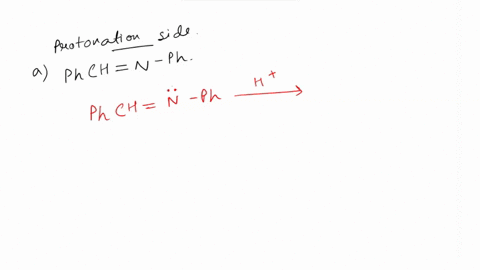 Protonation side.
a) PhCH = N - Ph.
PhCH = N̈ - Ph H⁺ →